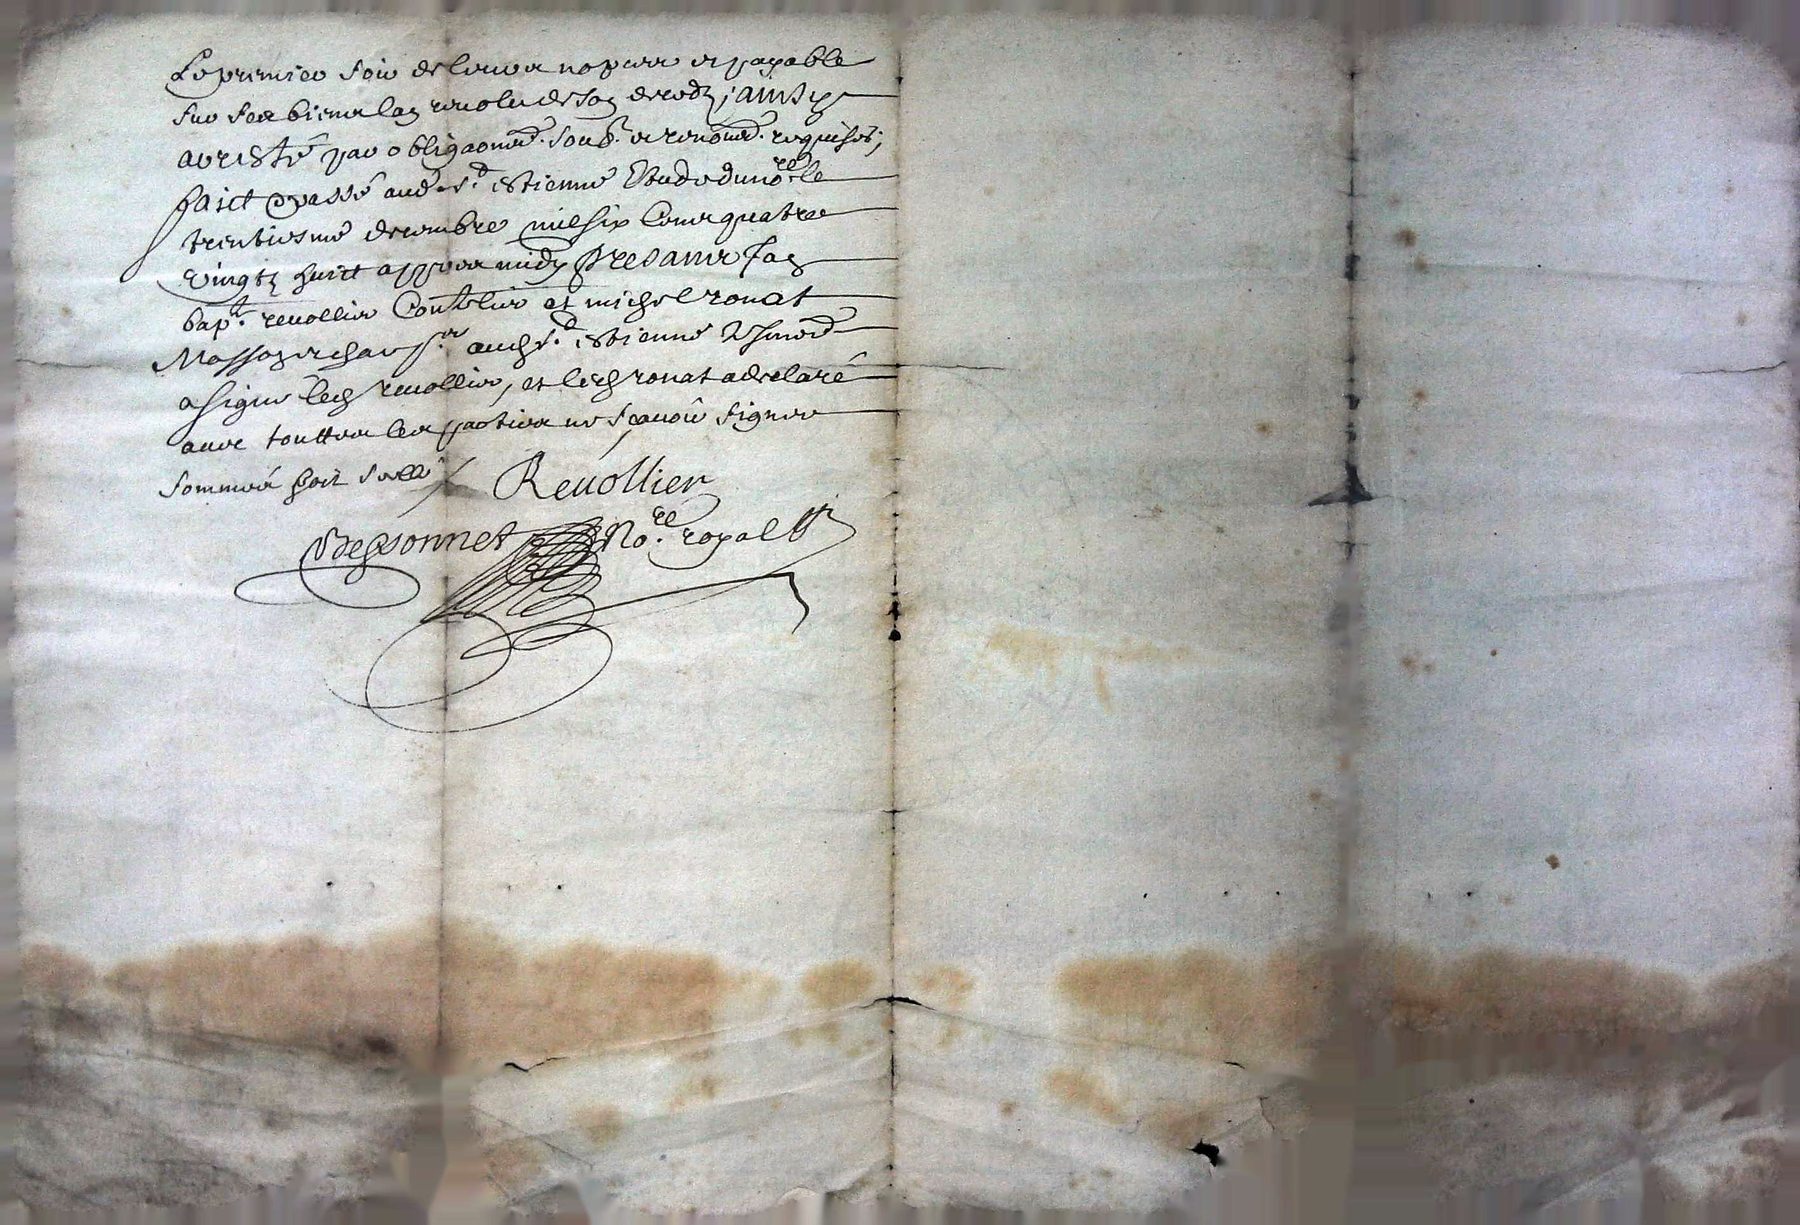 Le premier soir de leurs nopces et payable
sur ses biens l'an revolu de son deceds, ainsy
aresté par obligaons. soubs. et renons. requises,
faict & passé aud. st. estienne estude du nore le
trentiesme decembre mil six cents quatre
vingtz huict appres midy presants Jan
bapt. reuollier Coutelier et michel ronat
Masson et charp.er aud. st. estienne
a signé led. reuollier, et led. ronat a declaré
avec touttes les parties ne sçavoir signer
sommés soit scellé
Reuollier
Bessonnet No.re royal